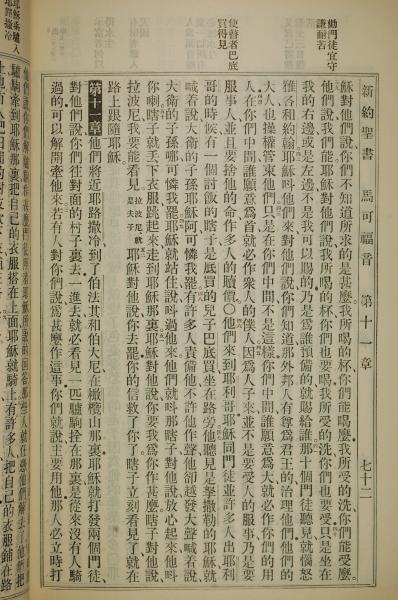 新約聖書 馬可福音 第十一章 七十二
勸門徒宜守
謙耐苦
穌對他們說、你們不知道所求的是甚麼、我所喝的杯、你們能喝麼、我所受的洗、你們能受麼。
他們說、我們能、耶穌對他們說、我所喝的杯、你們也要喝、我所受的洗、你們也要受、只是坐在
我的右邊或是左邊、不是我可以賜的、乃是爲誰預備的、就賜給誰、那十個門徒聽見、就惱怒
雅各和約翰、耶穌呌他們來、對他們說、你們知道那外邦人有尊爲君王的治理他們、他們的
大人也操權管束他們、只是在你們中間不是這樣、你們中間誰願意爲大、就必作你們的用
人、在你們中間誰願意爲首、就必作衆人的僕人、因爲人子來並不是要受人的服事、乃是要
服事人、並且要捨他的命作多人的贖價○他們來到耶利哥、耶穌同門徒並許多人出耶利
使瞽者巴底
買得見
哥的時候、有一個討飯的瞎子是底買的兒子巴底買、坐在路旁、他聽見是拏撒勒的耶穌、就
喊着說、大衛的子孫耶穌阿、可憐我罷、有許多人責備他、不許他作聲、他却越發大聲喊着說、
大衛的子孫哪、可憐我罷、耶穌就站住、說呌過他來、他們就呌那瞎子、對他說、放心起來、他呌
你喇、瞎子就丟下衣服、跳起來、走到耶穌那裏、耶穌對他說、你要我爲你作甚麼、瞎子對他說、
拉波尼我要能看見、拉波尼就是夫子 耶穌對他說、你去罷、你的信救了你了、瞎子立刻看見了、就在
路上跟隨耶穌。
第十一章 他們將近耶路撒冷、到了伯法其和伯大尼、在橄欖山那裏、耶穌就打發兩個門徒、
對他們說、你們往對面的村子裏去、一進去就必看見一匹驢駒拴在那裏、是從來沒有人騎
過的、可以解開牽他來、若有人對你們說、爲甚麼作這事、你們就說、主要用他、那人必立時打
耶穌乘驢入
耶路撒冷
驢駒牽到耶穌那裏、把自己的衣服搭在上面、耶穌就騎上、有許多人把自己的衣服鋪在路